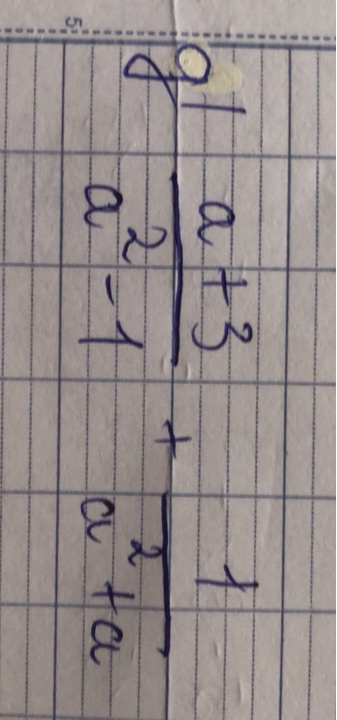 g) (a+3)/(a²-1) + 1/(a²+a)
5